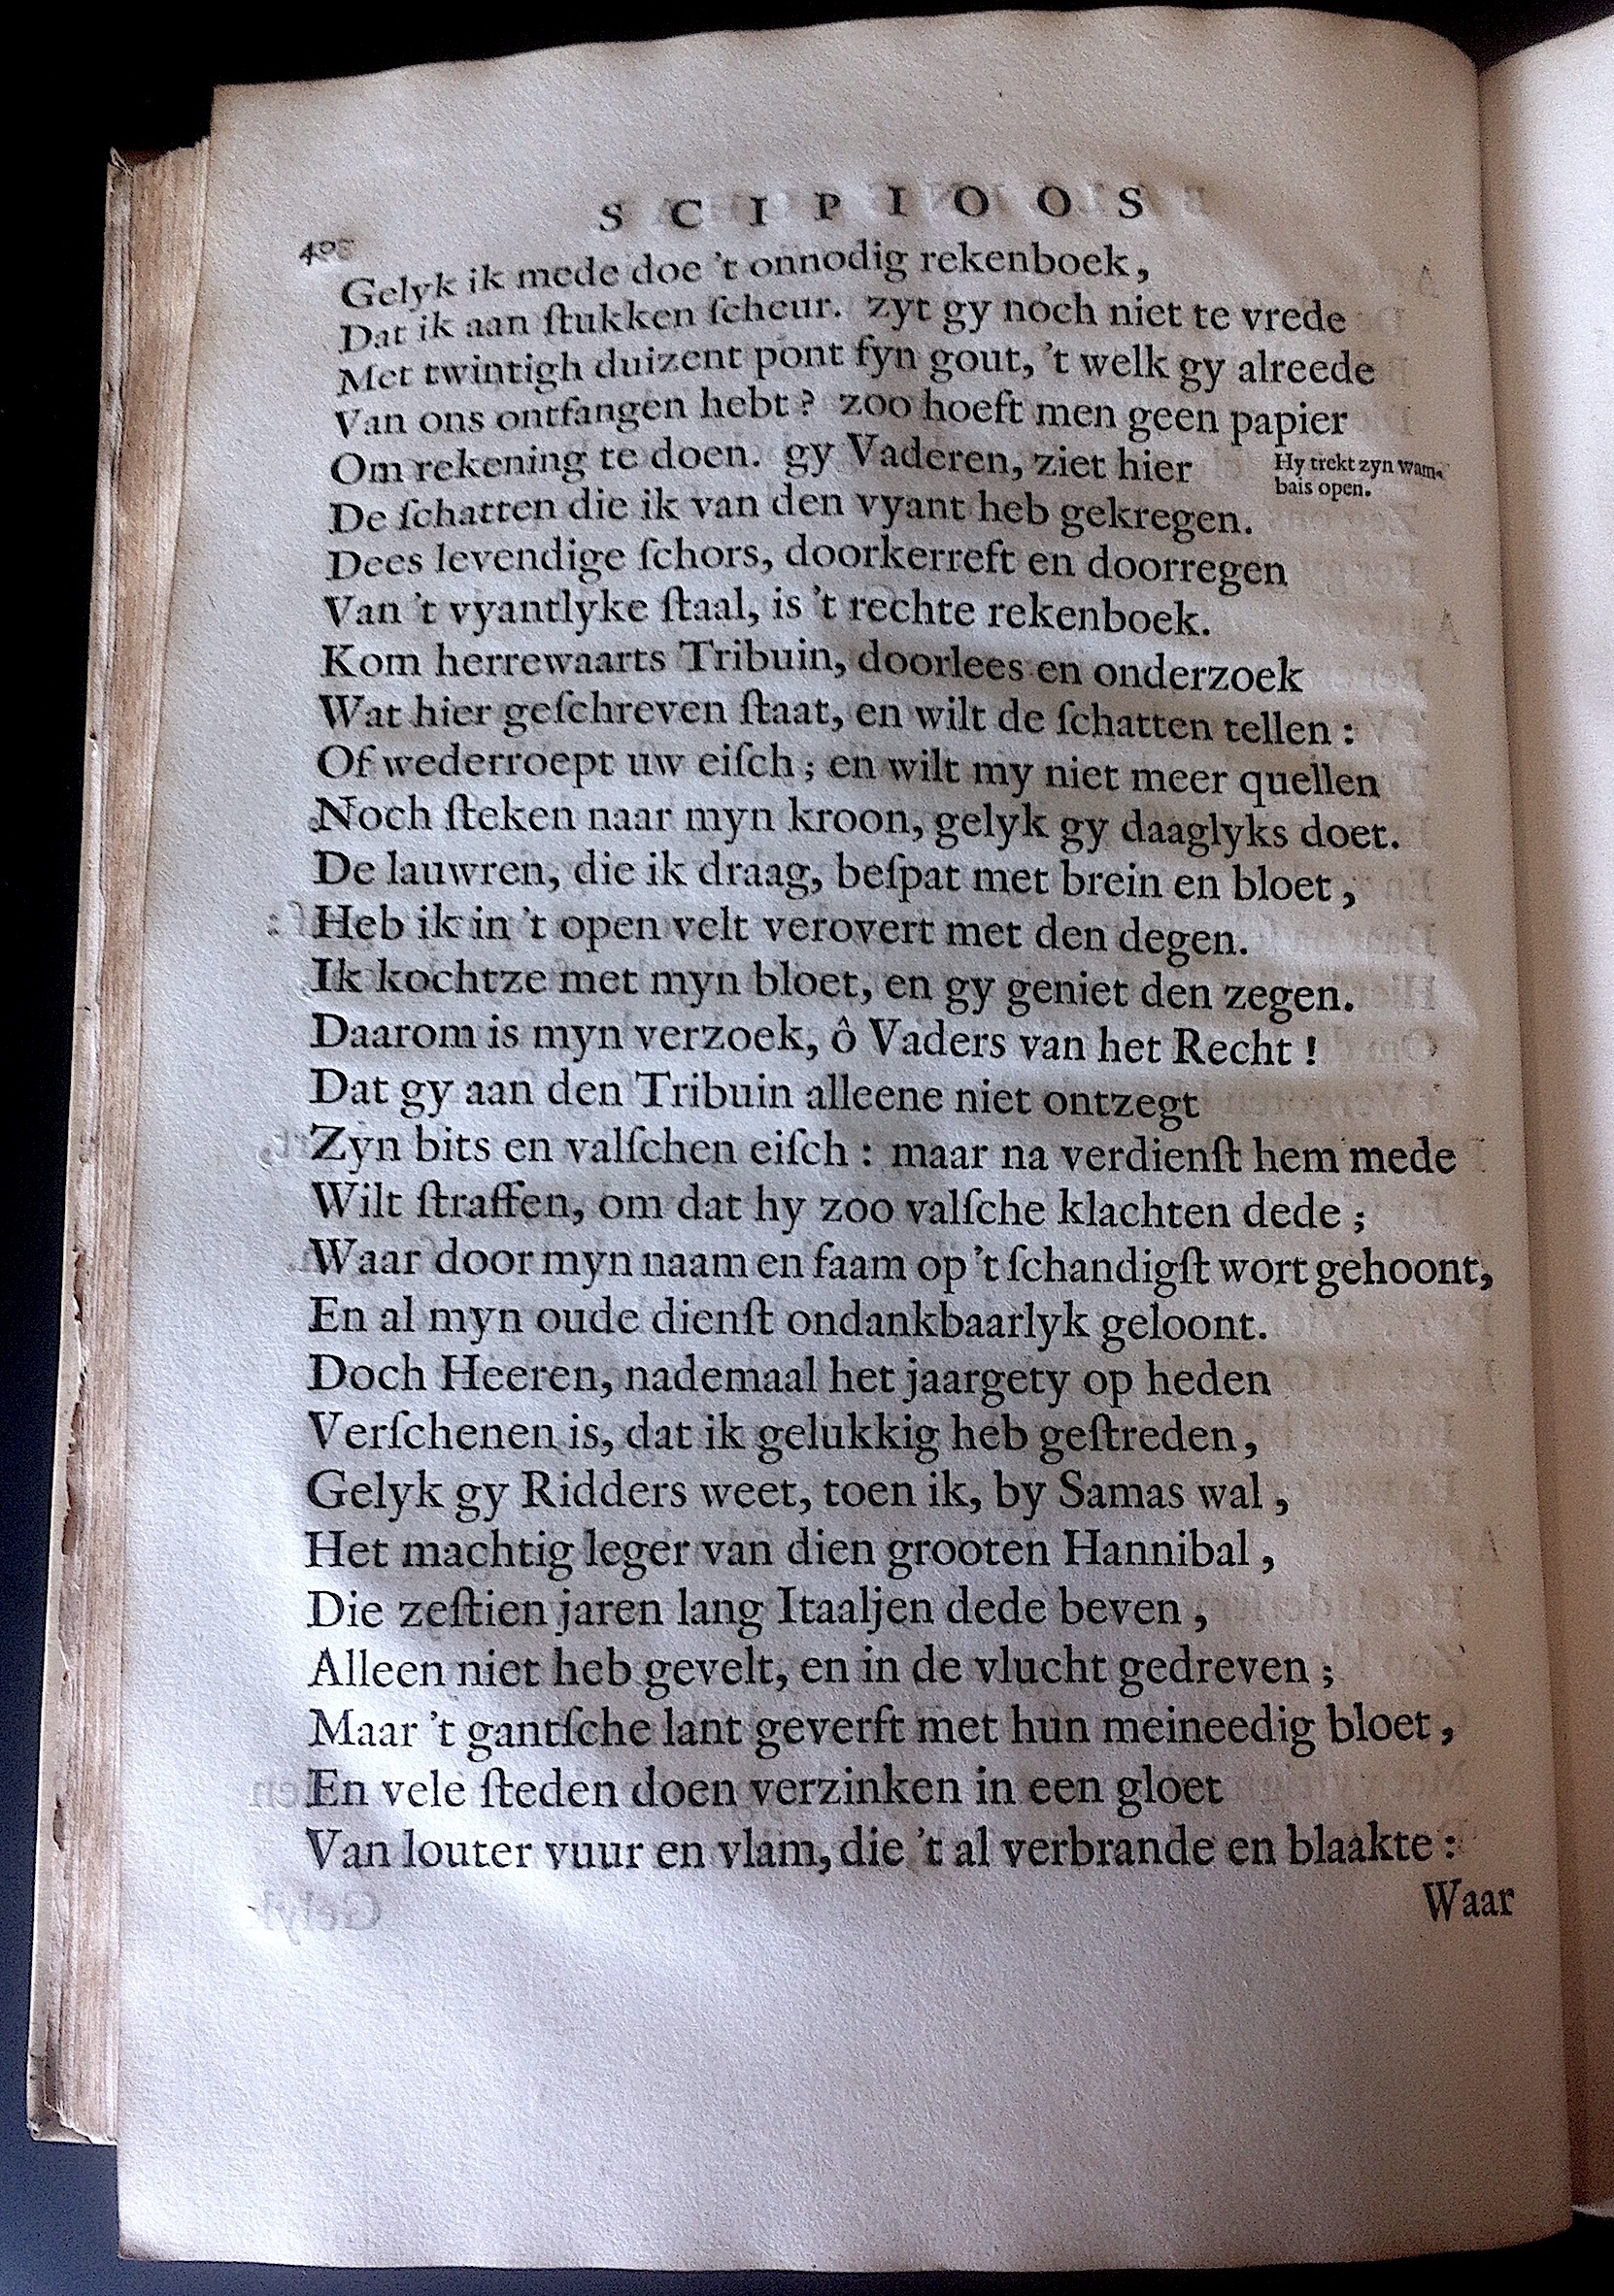 SCIPIOOS
Gelyk ik mede doe 't onnodig rekenboek,
Dat ik aan ſtukken ſcheur. zyt gy noch niet te vrede
Met twintigh duizent pont fyn gout, 't welk gy alreede
Van ons ontfangen hebt? zoo hoeft men geen papier
Om rekening te doen. gy Vaderen, ziet hier
Hy trekt zyn wam-
bais open.
De ſchatten die ik van den vyant heb gekregen.
Dees levendige ſchors, doorkerreft en doorregen
Van 't vyantlyke ſtaal, is 't rechte rekenboek.
Kom herrewaarts Tribuin, doorlees en onderzoek
Wat hier geſchreven ſtaat, en wilt de ſchatten tellen:
Of wederroept uw eiſch; en wilt my niet meer quellen
Noch ſteken naar myn kroon, gelyk gy daaglyks doet.
De lauwren, die ik draag, beſpat met brein en bloet,
Heb ik in 't open velt verovert met den degen.
Ik kochtze met myn bloet, en gy geniet den zegen.
Daarom is myn verzoek, ô Vaders van het Recht!
Dat gy aan den Tribuin alleene niet ontzegt
Zyn bits en valſchen eiſch: maar na verdienſt hem mede
Wilt ſtraffen, om dat hy zoo valſche klachten dede;
Waar door myn naam en faam op 't ſchandigſt wort gehoont,
En al myn oude dienſt ondankbaarlyk geloont.
Doch Heeren, nademaal het jaargety op heden
Verſchenen is, dat ik gelukkig heb geſtreden,
Gelyk gy Ridders weet, toen ik, by Samas wal,
Het machtig leger van dien grooten Hannibal,
Die zeſtien jaren lang Itaaljen dede beven,
Alleen niet heb gevelt, en in de vlucht gedreven;
Maar 't gantſche lant geverft met hun meineedig bloet,
En vele ſteden doen verzinken in een gloet
Van louter vuur en vlam, die 't al verbrande en blaakte:
Waar